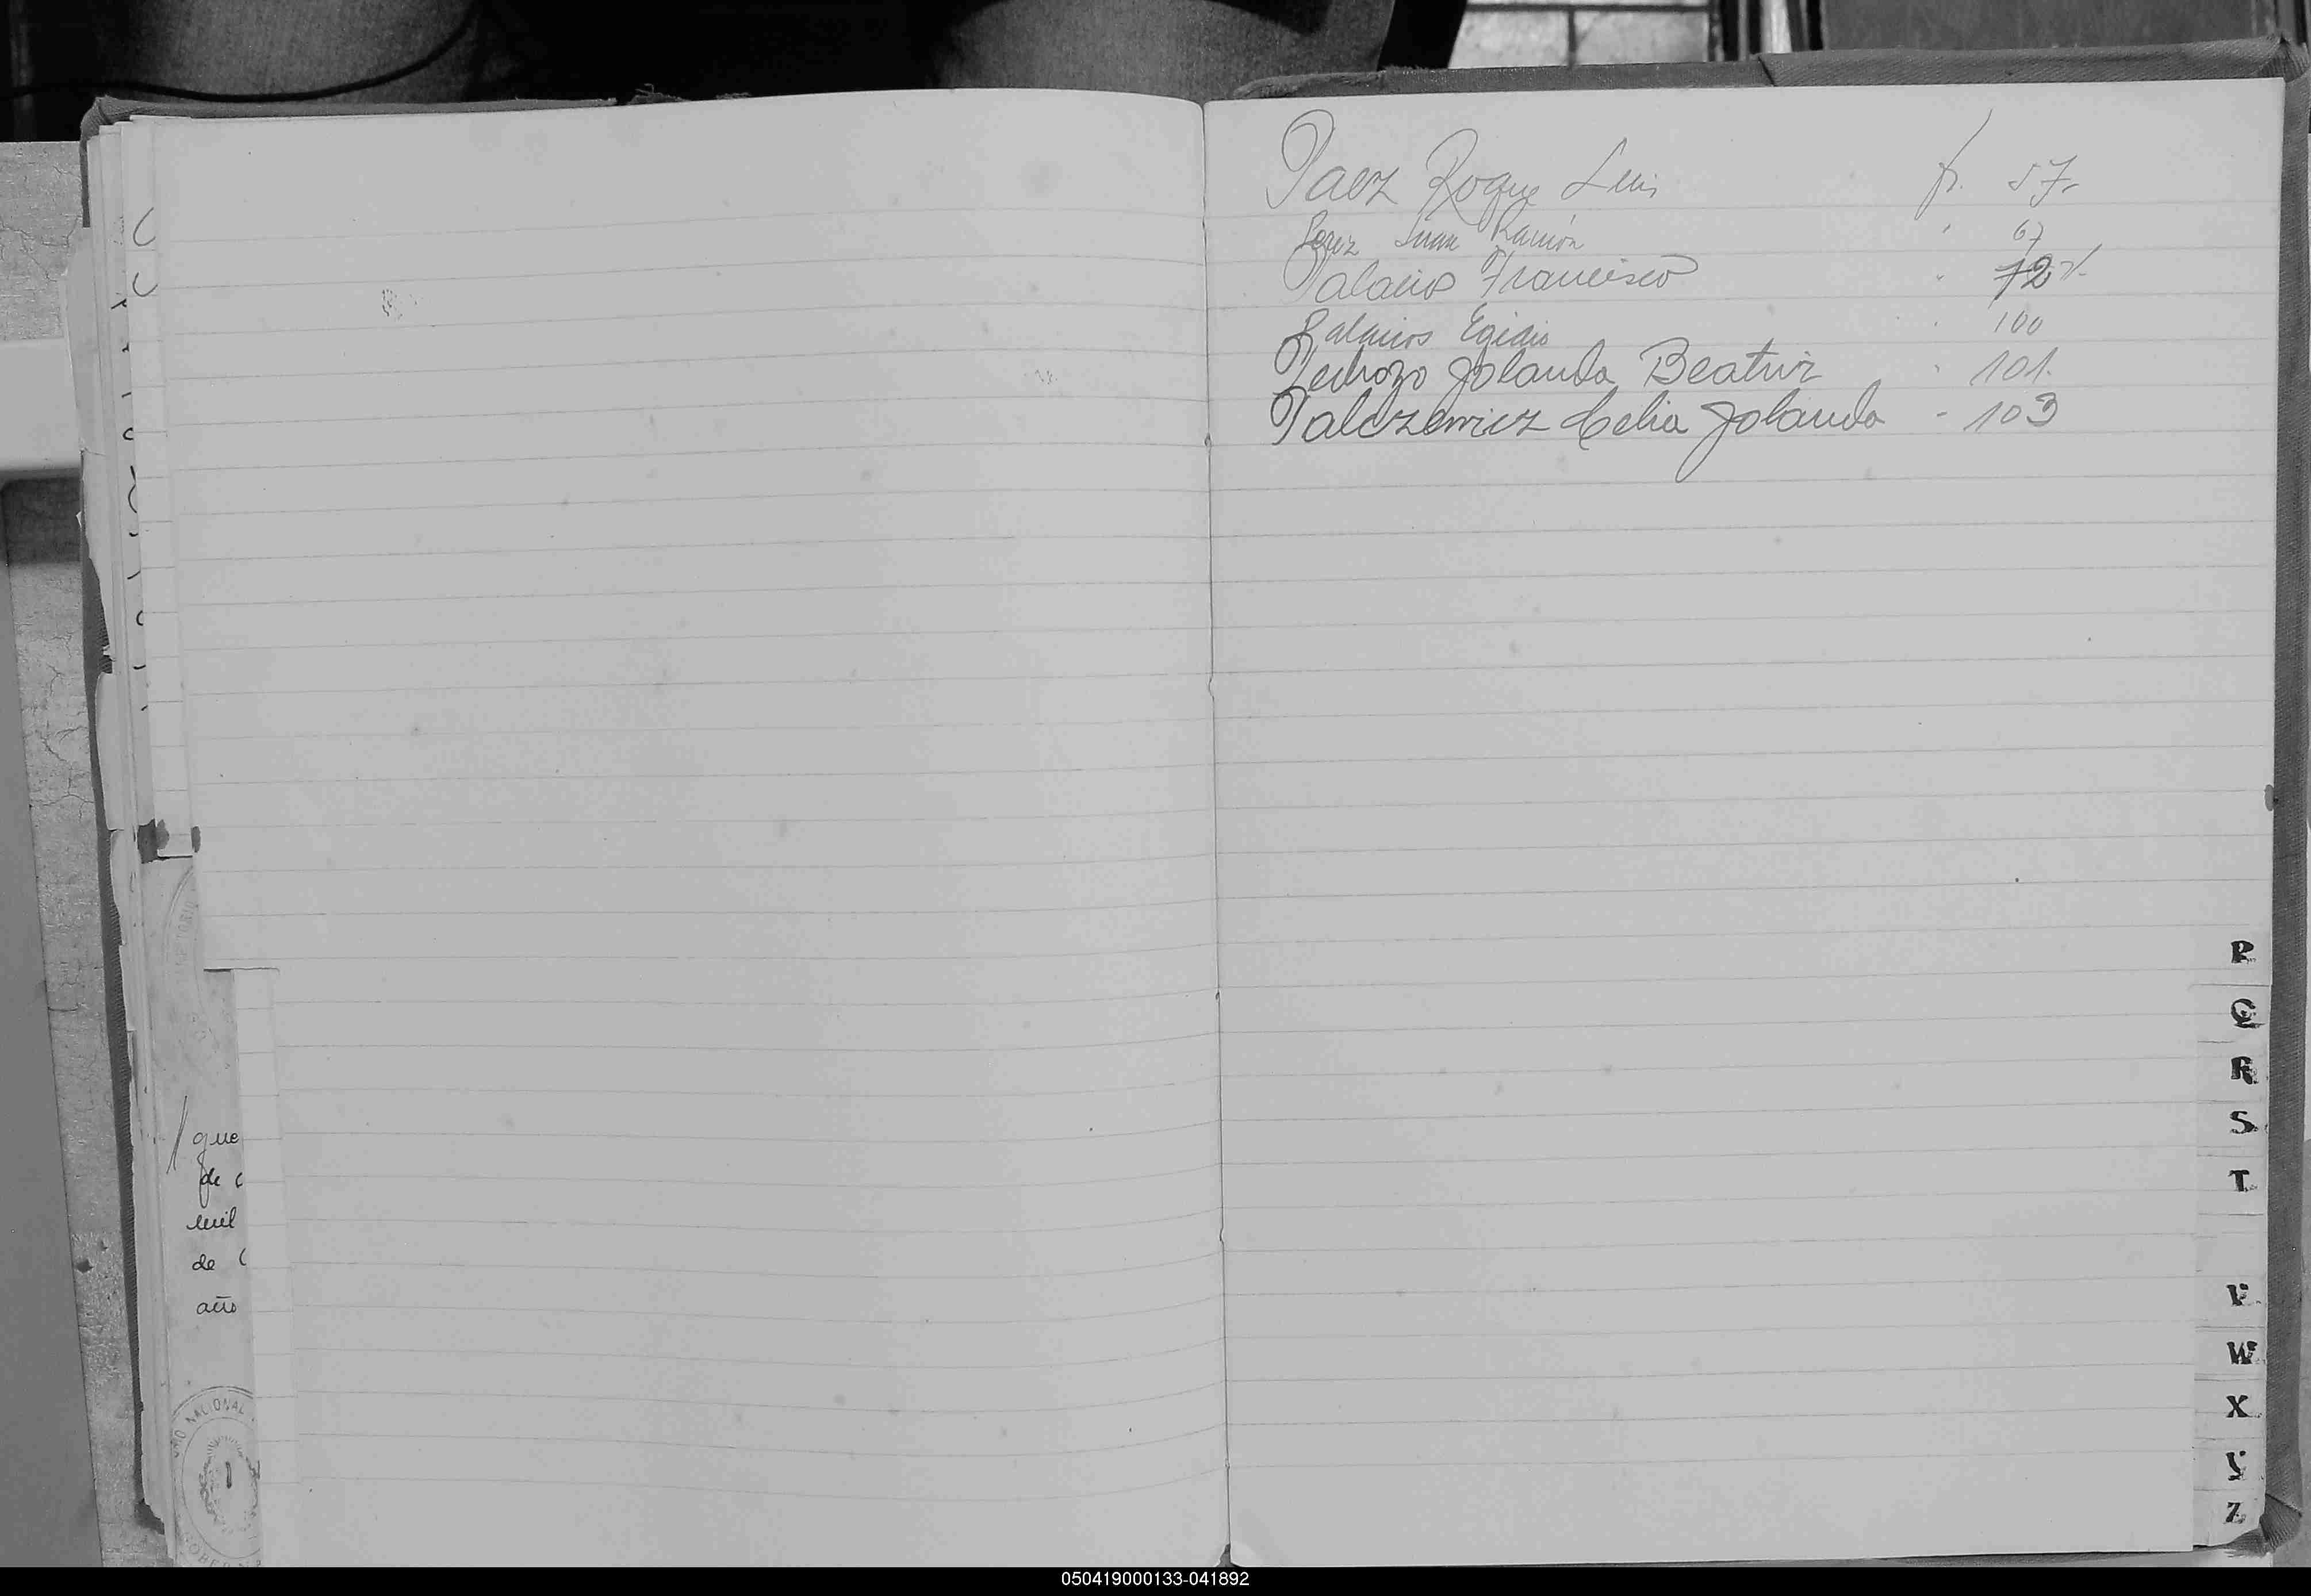 que
de
mil
de
año
NACIONAL
Paez Roque Luis fs. 57
Perez Juan Ramón " 67
Palacio Francisco " 72
Palacios Egidio " 100
Pedrozo Jolanda Beatriz " 101.
Palczewicz Celia Jolanda - 103
P
Q
R
S
T
V
W
X
Y
Z
050419000133-041892